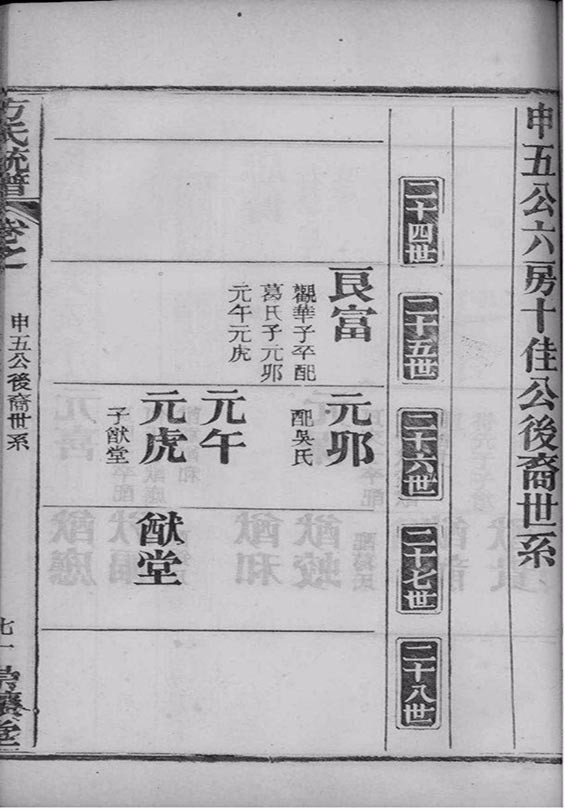 申五公六房十佳公後裔世系
二十四世
二十五世
二十六世
二十七世
二十八世
艮富
觀華子卒配
葛氏子元夘
元午元虎
元夘
配吳氏
元午
元虎
子猷堂
猷堂
方氏統譜
卷之一
申五公後裔世系
七一